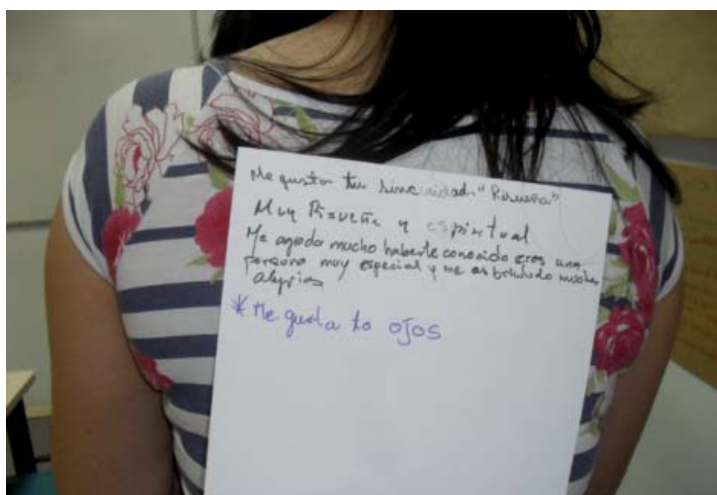 Me gusta tu sinceridad "Risueña"
Muy Risueña y espiritual
Me agoda mucho haberte conocido eres una
persona muy especial y me as brindado muchas
alegrias
* Me gusta to ojos